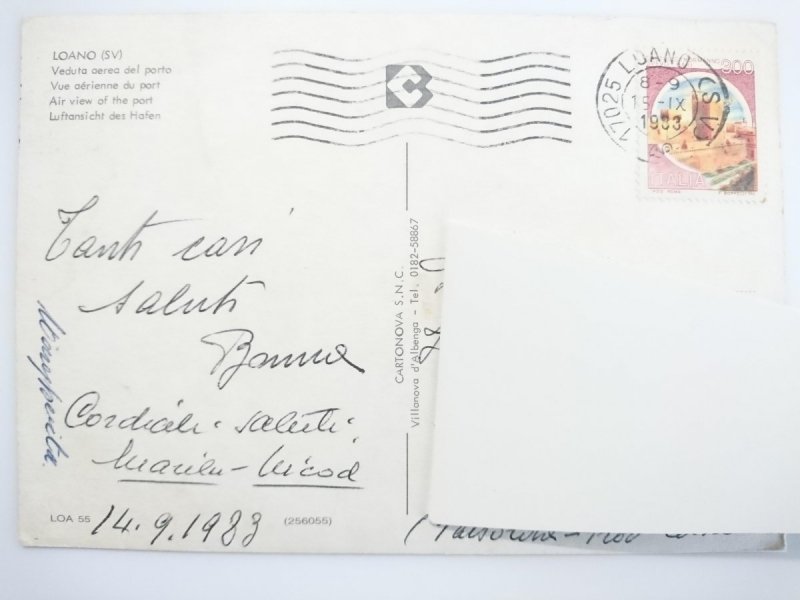 LOANO (SV)
Veduta aerea del porto
Vue aérienne du port
Air view of the port
Luftansicht des Hafen
17025 LOANO (SV)
8-9
15-IX
1983
900
ITALIA
Tanti cari
saluti
Bruna
Margherita
Cordiali saluti
LOA 55
14.9.1983
(256055)
CARTONOVA S.N.C.
Villanova d'Albenga - Tel. 0182-58867